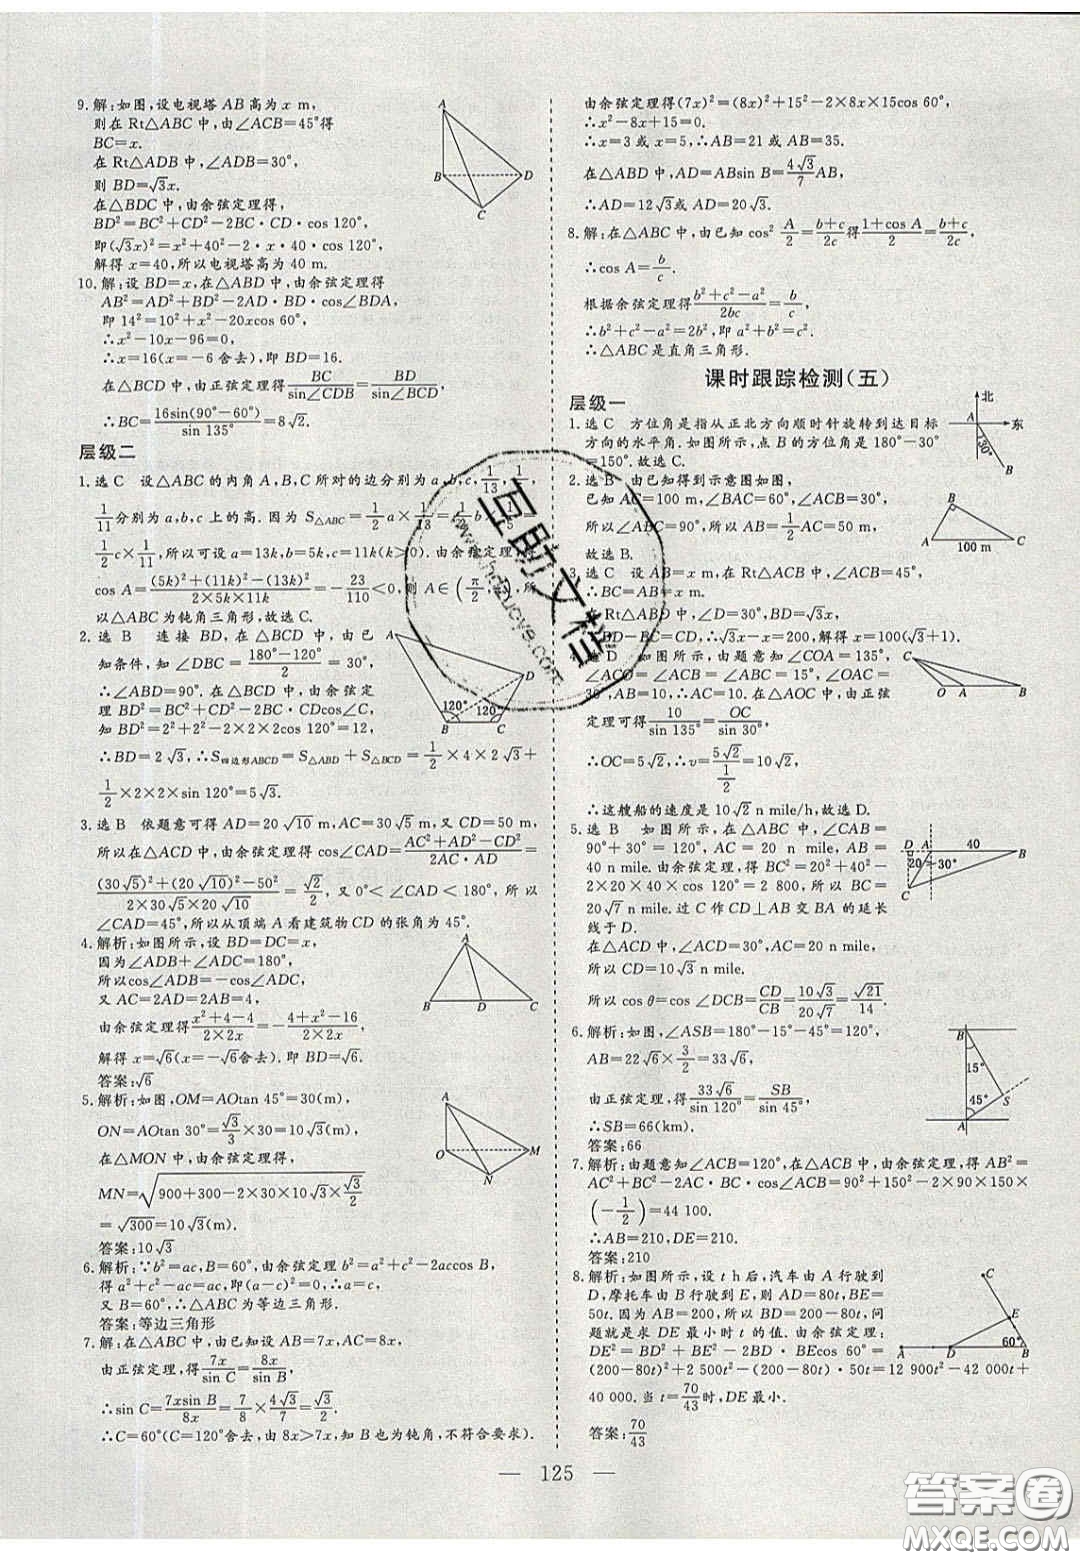 9.解:如图,设电视塔 AB 高为 x m,
则在 Rt△ABC 中,由∠ACB=45°得
BC=x.
在 Rt△ADB 中,∠ADB=30°,
则 BD=√3x.
在△BDC 中,由余弦定理得,
BD²=BC²+CD²-2BC·CD·cos 120°,
即(√3x)²=x²+40²-2·x·40·cos 120°,
解得 x=40,所以电视塔高为 40 m.
10.解:设 BD=x,在△ABD 中,由余弦定理得
AB²=AD²+BD²-2AD·BD·cos∠BDA,
即 14²=10²+x²-20xcos 60°,
∴x²-10x-96=0,
∴x=16(x=-6 舍去),即 BD=16.
在△BCD 中,由正弦定理得 BC/sin∠CDB=BD/sin∠BCD,
∴BC=16sin(90°-60°)/sin 135°=8√2.
层级二
1.选 C 设△ABC 的内角 A,B,C 所对的边分别为 a,b,c,1/13,1/5,
1/11分别为 a,b,c 上的高.因为 S△ABC=1/2 a×1/13=1/2 b×1/5=
1/2 c×1/11,所以可设 a=13k,b=5k,c=11k(k>0).由余弦定理,得
cos A=((5k)²+(11k)²-(13k)²)/(2×5k×11k)=-23/110<0,则 A∈(π/2,π),所
以△ABC 为钝角三角形,故选 C.
2.选 B 连接 BD,在△BCD 中,由已
知条件,知∠DBC=(180°-120°)/2=30°,
∴∠ABD=90°.在△BCD 中,由余弦定
理 BD²=BC²+CD²-2BC·CDcos∠C,
知 BD²=2²+2²-2×2×2cos 120°=12,
∴BD=2√3,∴S四边形ABCD=S△ABD+S△BCD=1/2×4×2√3+
1/2×2×2×sin 120°=5√3.
3.选 B 依题意可得 AD=20√10 m,AC=30√5 m,又 CD=50 m,
所以在△ACD 中,由余弦定理得 cos∠CAD=(AC²+AD²-CD²)/(2AC·AD)=
((30√5)²+(20√10)²-50²)/(2×30√5×20√10)=√2/2,又 0°<∠CAD<180°,所以
∠CAD=45°,所以从顶端 A 看建筑物 CD 的张角为 45°.
4.解析:如图所示,设 BD=DC=x,
因为∠ADB+∠ADC=180°,
所以 cos∠ADB=-cos∠ADC,
又 AC=2AD=2AB=4,
由余弦定理得(x²+4-4)/(2×2x)=-(4+x²-16)/(2×2x),
解得 x=√6(x=-√6舍去).即 BD=√6.
答案:√6
5.解析:如图,OM=AOtan 45°=30(m),
ON=AOtan 30°=√3/3×30=10√3(m),
在△MON 中,由余弦定理得,
MN=√(900+300-2×30×10√3×√3/2)
=√300=10√3(m).
答案:10√3
6.解析:∵b²=ac,B=60°,由余弦定理 b²=a²+c²-2accos B,
得 a²+c²-ac=ac,即(a-c)²=0,∴a=c,
又 B=60°,∴△ABC 为等边三角形.
答案:等边三角形
7.解:在△ABC 中,由已知设 AB=7x,AC=8x,
由正弦定理,得7x/sin C=8x/sin B,
∴sin C=7xsin B/8x=7/8×4√3/7=√3/2.
∴C=60°(C=120°舍去,由 8x>7x,知 B 也为钝角,不符合要求).
由余弦定理得(7x)²=(8x)²+15²-2×8x×15cos 60°,
∴x²-8x+15=0.
∴x=3 或 x=5,∴AB=21 或 AB=35.
在△ABD 中,AD=ABsin B=4√3/7 AB,
∴AD=12√3或 AD=20√3.
8.解:在△ABC 中,由已知 cos² A/2=(b+c)/2c得(1+cos A)/2=(b+c)/2c,
∴cos A=b/c.
根据余弦定理得(b²+c²-a²)/2bc=b/c.
∴b²+c²-a²=2b²,即 a²+b²=c².
∴△ABC 是直角三角形.
课时跟踪检测(五)
层级一
1.选 C 方位角是指从正北方向顺时针旋转到达目标
方向的水平角.如图所示,点 B 的方位角是 180°-30°
=150°.故选 C.
2.选 B 由已知得到示意图如图,
已知 AC=100 m,∠BAC=60°,∠C=30°,
所以∠ABC=90°,所以 AB=1/2 AC=50 m,
故选 B.
3.选 C 设 AB=x m,在 Rt△ACB 中,∠ACB=45°,
∴BC=AB=x m.
在 Rt△ABD 中,∠D=30°,∴BD=√3x.
∵BD-BC=CD,∴√3x-x=200,解得 x=100(√3+1).
4.选 D 如图所示,由题意知∠COA=135°,
∠ACO=∠ACB-∠BAC=15°,∠OAC=
30°,AO=10.在△AOC 中,由正弦
定理可得10/sin 15°=OC/sin 30°,
∴OC=5√2,∴v=5√2/(1/2)=10√2,
∴这艘船的速度是 10√2 n mile/h,故选 D.
5.选 B 如图所示,在△ABC 中,∠CAB=
90°+30°=120°,AC=20 n mile,AB=
40 n mile.由余弦定理,得 BC²=20²+40²-
2×20×40×cos 120°=2 800,所以 BC=
20√7 n mile.过 C 作 CD⊥AB 交 BA 的延长
线于 D.
在△ACD 中,∠ACD=30°,AC=20 n mile,
所以 CD=10√3 n mile.
所以 cos θ=cos∠DCB=CD/CB=10√3/20√7=√21/14.
6.解析:如图,∠ASB=180°-15°-45°=120°,
AB=22√6×3/2=33√6,
由正弦定理,得33√6/sin 120°=SB/sin 45°,
∴SB=66(km).
答案:66
7.解析:由题意知∠ACB=120°,在△ACB 中,由余弦定理,得 AB²=
AC²+BC²-2AC·BC·cos∠ACB=90²+150²-2×90×150×
(-1/2)=44 100.
∴AB=210,DE=210.
答案:210
8.解析:如图所示,设 t h 后,汽车由 A 行驶到
D,摩托车由 B 行驶到 E,则 AD=80t,BE=
50t.因为 AB=200,所以 BD=200-80t,问
题就是求 DE 最小时 t 的值.由余弦定理得,
DE²=BD²+BE²-2BD·BEcos 60°=
(200-80t)²+2 500t²-(200-80t)·50t=12 900t²-42 000t+
40 000.当 t=70/43时,DE 最小.
答案:70/43
125
互助文档
www.hdzuoye.com
答案圈
MXQE.COM